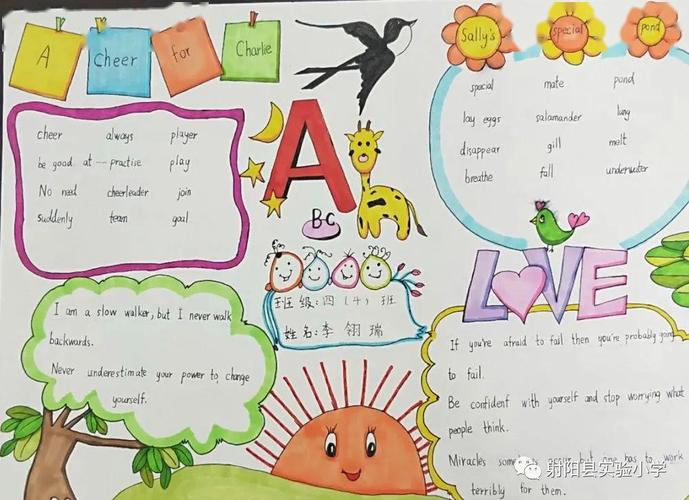 A Cheer for Charlie
Sally's special pond
cheer always player
be good at — practise play
No need cheerleader join
suddenly team goal
special mate pond
lay eggs salamander lung
disappear gill melt
breathe fall underwater
A
BC
班级:四(4)班
姓名:李翎瑞
LOVE
I am a slow walker, but I never walk
backwards.
Never underestimate your power to change
yourself.
If you're afraid to fail then you're probably going
to fail.
Be confident with yourself and stop worrying what
people think.
Miracles occur but one has to work
terribly for them.
射阳县实验小学